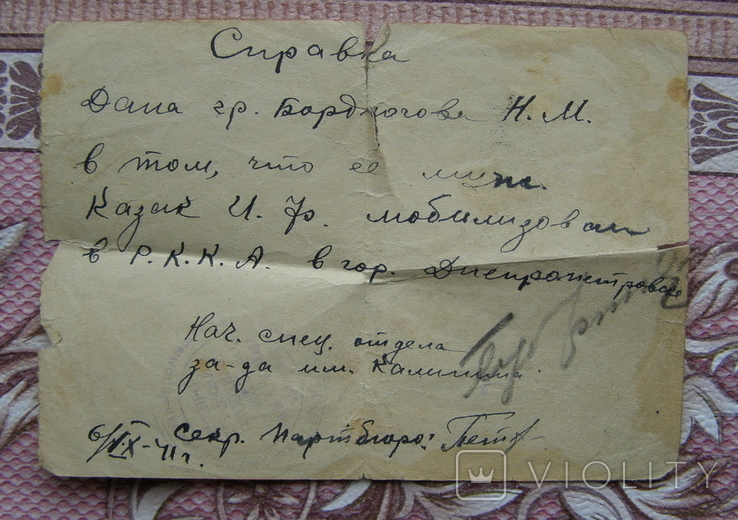 Справка
Дана гр. Бордюгова Н. М.
в том, что её муж
Казак И. Ф. мобилизован
в Р.К.К.А. в гор. Днепропетровске
Нач. спец. отдела
за-да им. Калинина
Секр. партбюро:
6/IX-41г.
VIOLITY